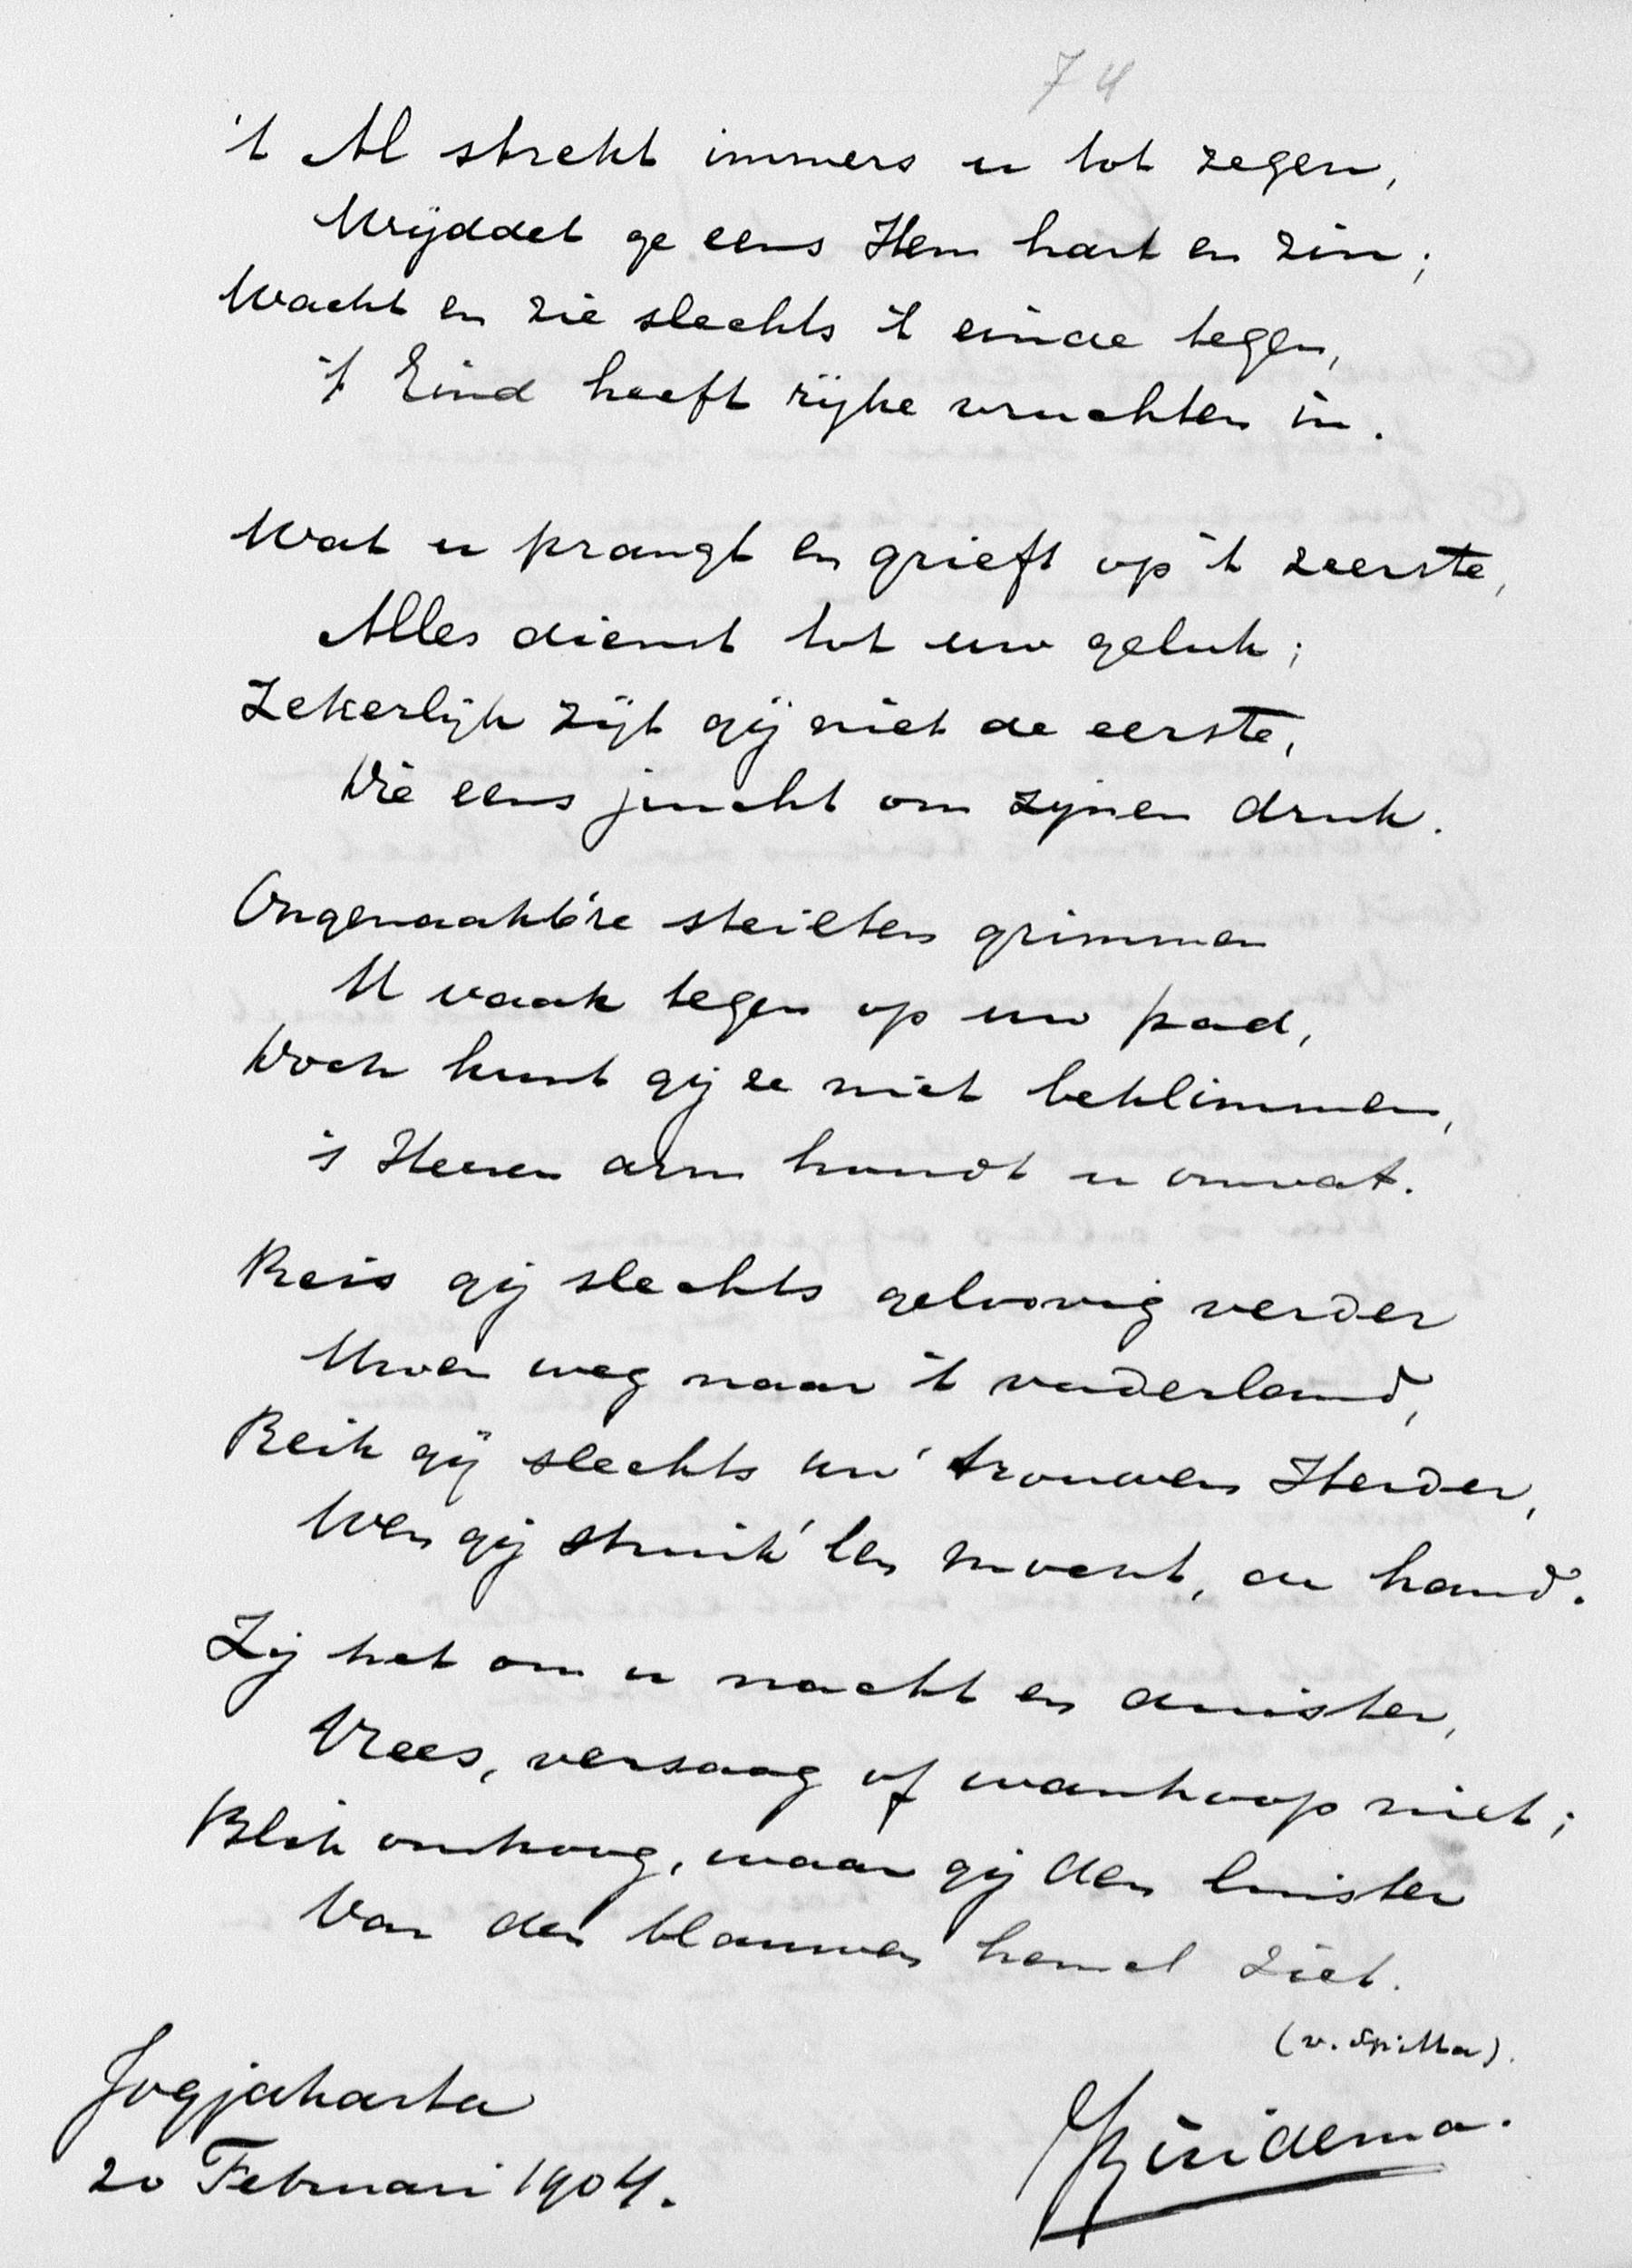 74
't Al strekt immers u tot zegen,
Wijddet ge eens Hem hart en zin;
Wacht en zie slechts 't einde tegen,
't Eind heeft rijke vruchten in.
Wat u prangt en grieft op 't zeerste,
Alles dienst tot uw geluk;
Zekerlijk zijt gij niet de eerste,
Die eens juicht om zijnen druk.
Ongenaakb're steilten grimmen
U vaak tegen op uw pad,
Doch kunt gij ze niet beklimmen,
's Heeren arm houdt u omvat.
Reis gij slechts geloovig verder
Uwen weg naar 't vaderland,
Reik gij slechts uw' trouwen Herder,
Wen gij struik'len moest, de hand.
Zij het om u nacht en duister,
Vrees, versaag of wanhoop niet;
Blik omhoog, waar gij den luister
Van den blauwen hemel ziet.
(v. Spitta).
Jogjakarta
20 Februari 1904.
Zuidema.